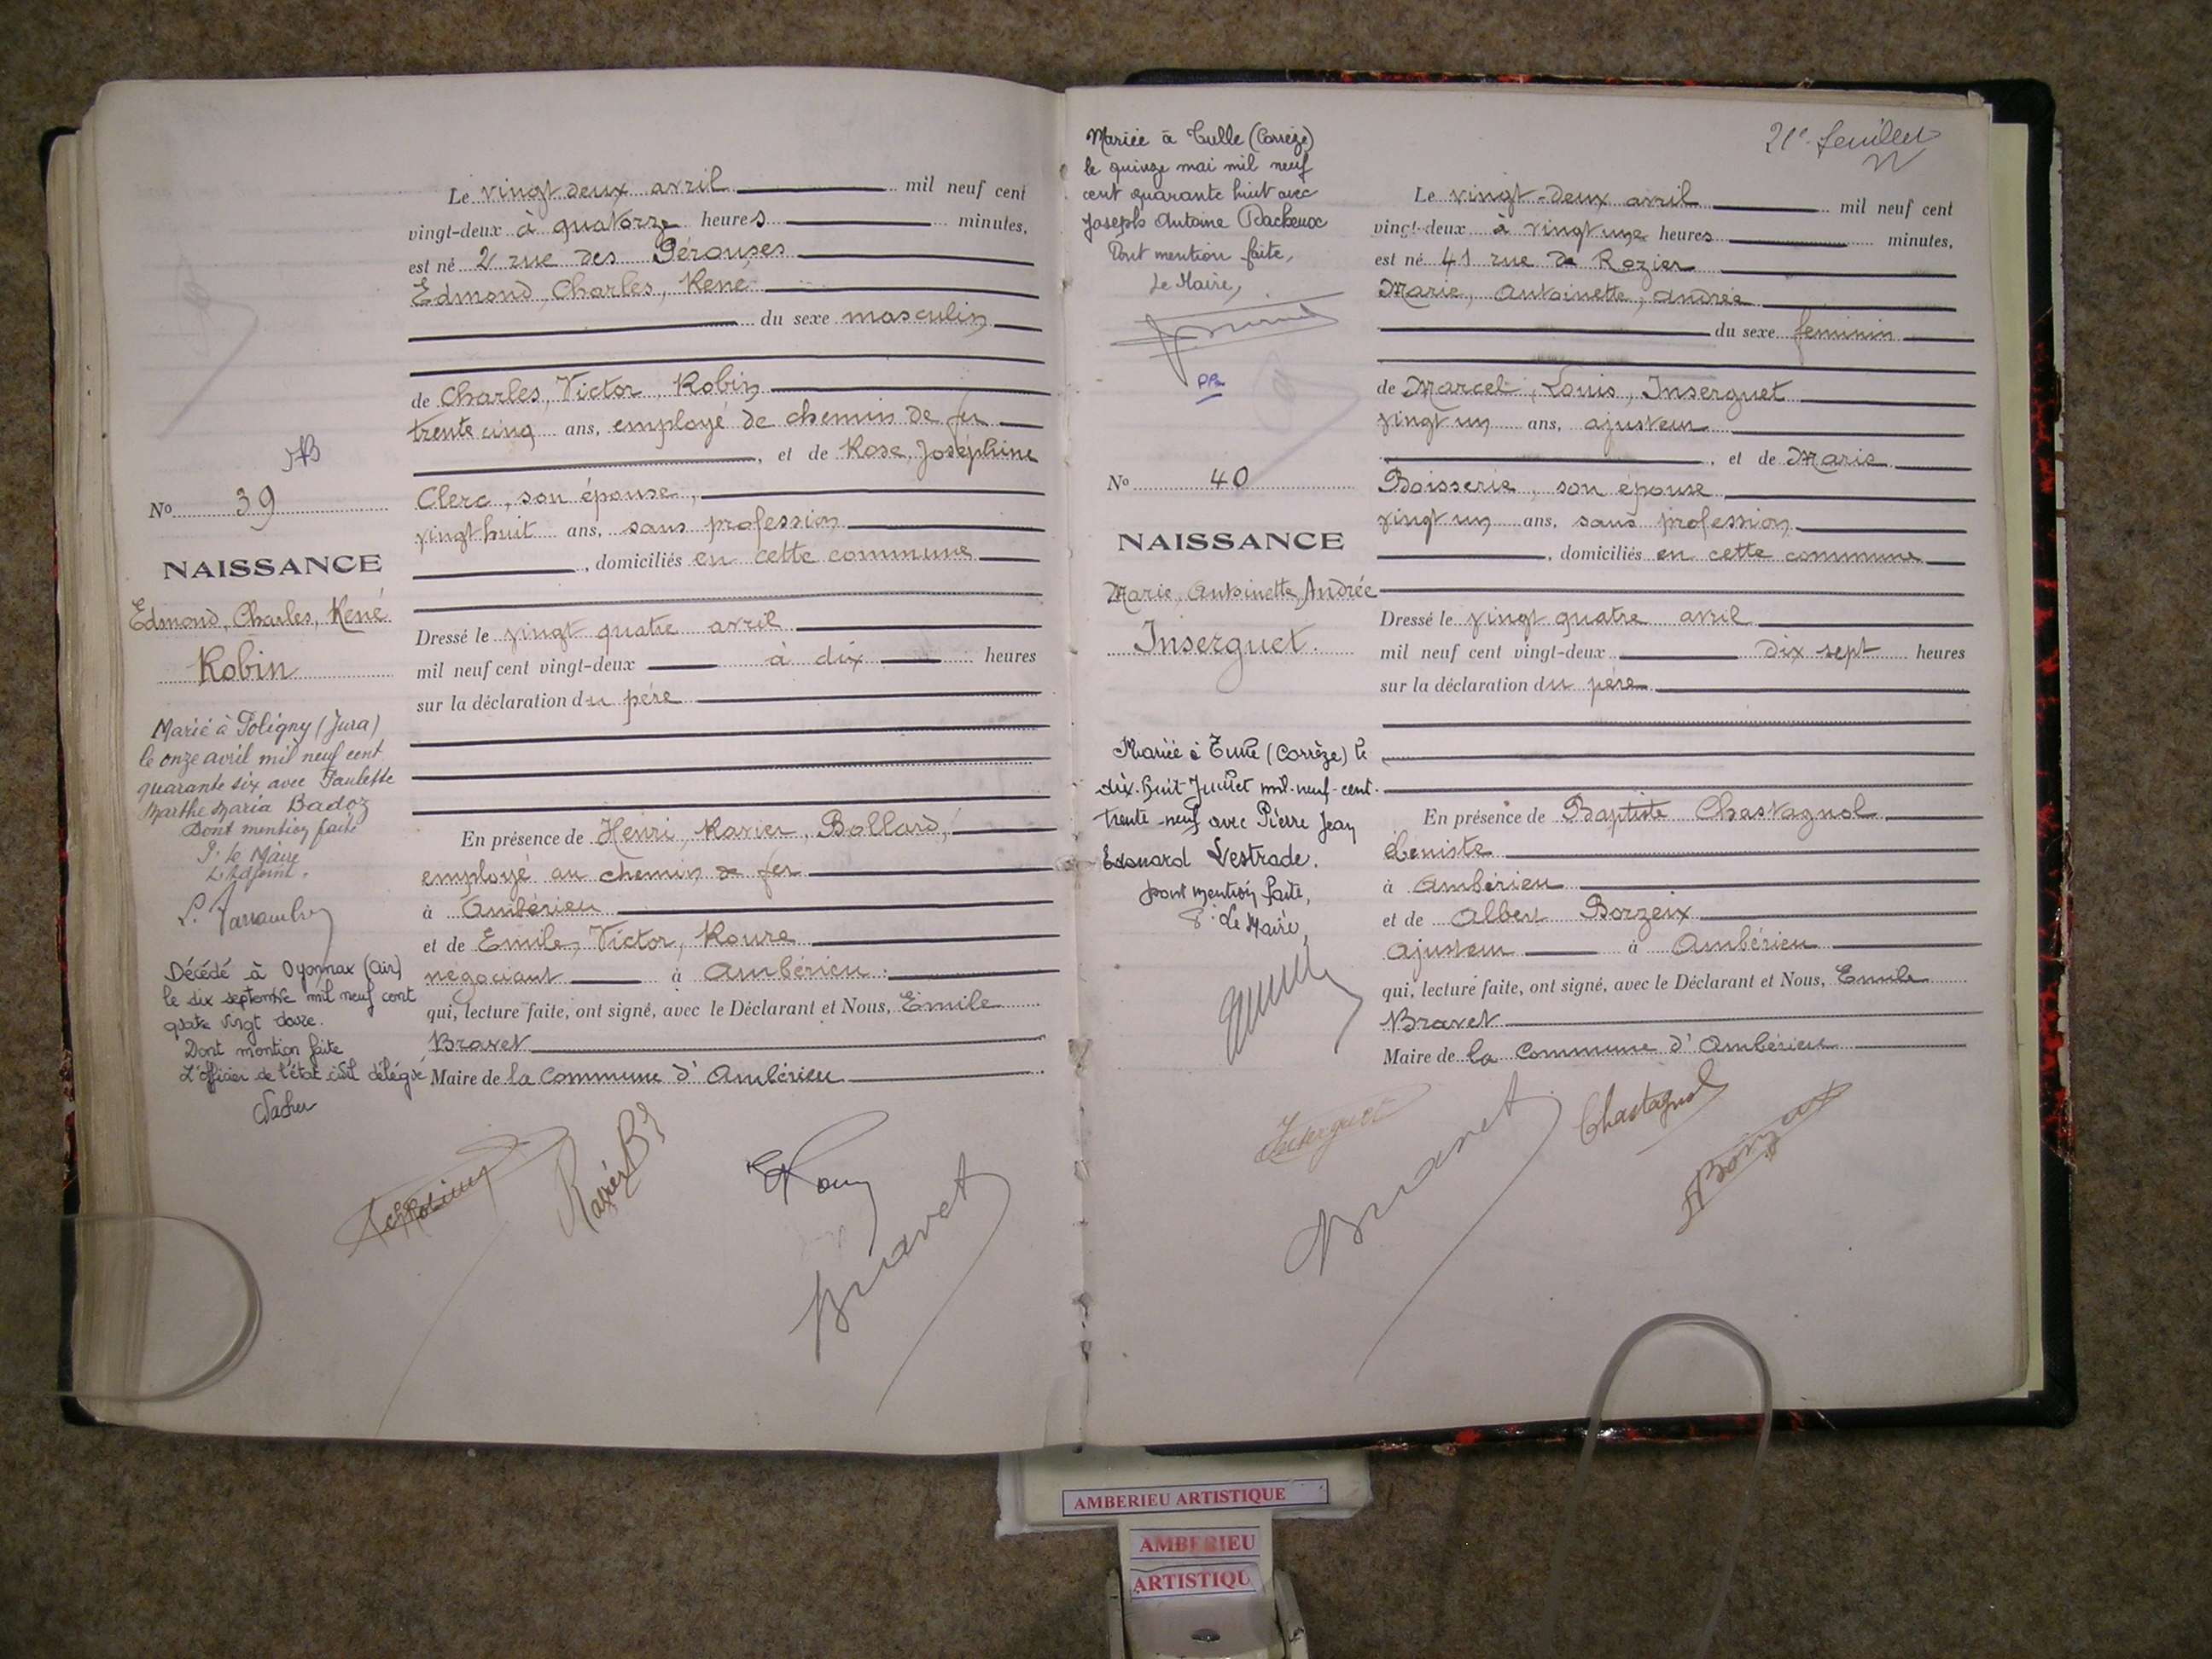 Le vingt deux avril mil neuf cent
vingt-deux à quatorze heures minutes,
est né 2 rue des Pérouses
Edmond, Charles, René
du sexe masculin
de Charles, Victor Robin
trente cinq ans, employé de chemin de fer
, et de Rose, Joséphine
Clerc, son épouse,
vingt huit ans, sans profession
, domiciliés en cette commune
Dressé le vingt quatre avril
mil neuf cent vingt-deux à dix heures
sur la déclaration du père
En présence de Henri, Xavier, Bollard,
employé au chemin de fer
à Ambérieu
et de Emile, Victor, Roure
négociant à Ambérieu
qui, lecture faite, ont signé, avec le Déclarant et Nous, Emile
Bravet
Maire de la Commune d'Ambérieu
Bravet
No 39
NAISSANCE
Edmond, Charles, René
Robin
Marié à Poligny (Jura)
le onze avril mil neuf cent
quarante six avec Paulette
Marthe Maria Badoz
Dont mention faite
P. le Maire
L'Adjoint.
Décédé à Oyonnax (Ain)
le dix septembre mil neuf cent
quatre vingt douze.
Dont mention faite
L'officier de l'état civil délégué
21e feuillet
Mariée à Tulle (Corrèze)
le quinze mai mil neuf
cent quarante huit avec
Joseph Antoine
Dont mention faite,
Le Maire,
No 40
NAISSANCE
Marie, Antoinette, Andrée
Inserguet
Mariée à Tulle (Corrèze) le
dix-huit Juillet mil-neuf-cent-
trente-neuf avec Pierre Jean
Edouard Lestrade.
Dont mention faite,
P. Le Maire,
Le vingt-deux avril mil neuf cent
vingt-deux à vingt une heures minutes,
est né 41 rue de Rozier
Marie, Antoinette, Andrée
du sexe feminin
de Marcel, Louis, Inserguet
vingt un ans, ajusteur
, et de Marie
Boisserie, son épouse
vingt un ans, sans profession
, domiciliés en cette commune
Dressé le vingt quatre avril
mil neuf cent vingt-deux dix sept heures
sur la déclaration du père
En présence de Baptiste Chastagnol
ébeniste
à Ambérieu
et de Albert Borzeix
ajusteur à Ambérieu
qui, lecture faite, ont signé, avec le Déclarant et Nous, Emile
Bravet
Maire de la Commune d'Ambérieu
Inserguet
Bravet
Chastagnol
AMBERIEU ARTISTIQUE
AMBERIEU
ARTISTIQU